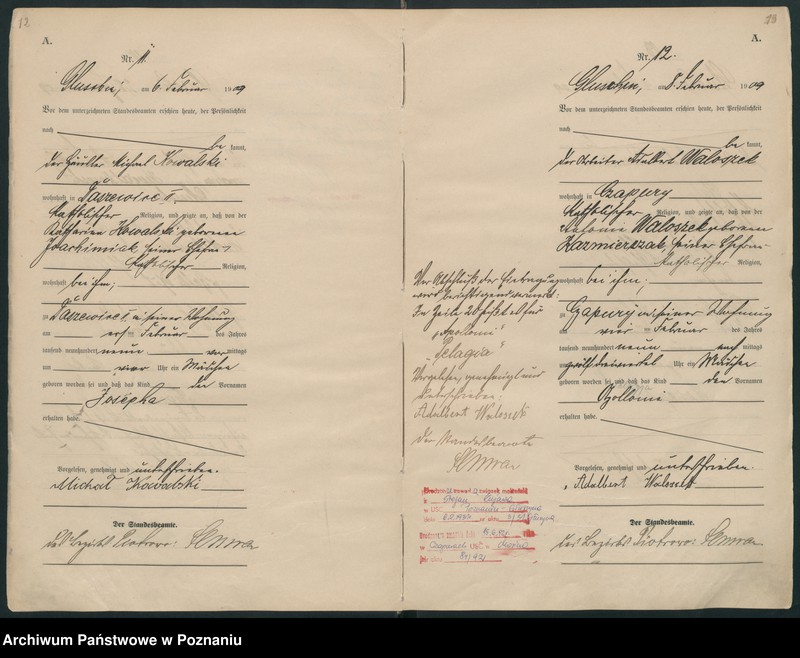 12
A.
Nr. 11.
am 6. Februar 1909
Vor dem unterzeichneten Standesbeamten erschien heute, der Persönlichkeit
nach
be kannt,
der Häusler Michael Kowalski
wohnhaft in
Katholischer Religion, und zeigte an, daß von der
Katharina Kowalski geborenen
Joachimiak, seiner Ehefrau
Katholischer Religion,
wohnhaft bei ihm;
zu in seiner Wohnung
am ersten Februar des Jahres
tausend neunhundert neun vor mittags
um vier Uhr ein Mädchen
geboren worden sei und daß das Kind den Vornamen
Josepha
erhalten habe.
Vorgelesen, genehmigt und unterschrieben.
Michał Kowalski
Der Standesbeamte.
des Bezirks Piotrowo:
13
A.
Nr. 12.
Gluschin, am 8. Februar 1909
Vor dem unterzeichneten Standesbeamten erschien heute, der Persönlichkeit
nach
be kannt,
der Arbeiter Adalbert Waloszek
wohnhaft in Czapury
Katholischer Religion, und zeigte an, daß von der
Waloszek geborenen
Kazmierczak, seiner Ehefrau
Katholischer Religion,
wohnhaft bei ihm;
zu Czapury in seiner Wohnung
am vier Februar des Jahres
tausend neunhundert neun nach mittags
Uhr ein Mädchen
geboren worden sei und daß das Kind den Vornamen
Apollonia
erhalten habe.
Vorgelesen, genehmigt und unterschrieben.
Adalbert Waloszek
Der Standesbeamte.
des Bezirks Piotrowo:
Vor Abschluß der Eintragung
wird berichtigend vermerkt:
In Zeile 20 für
"Pelagia"
Vorgelesen, genehmigt und
unterschrieben:
Adalbert Waloszek
Der Standesbeamte
Archiwum Państwowe w Poznaniu